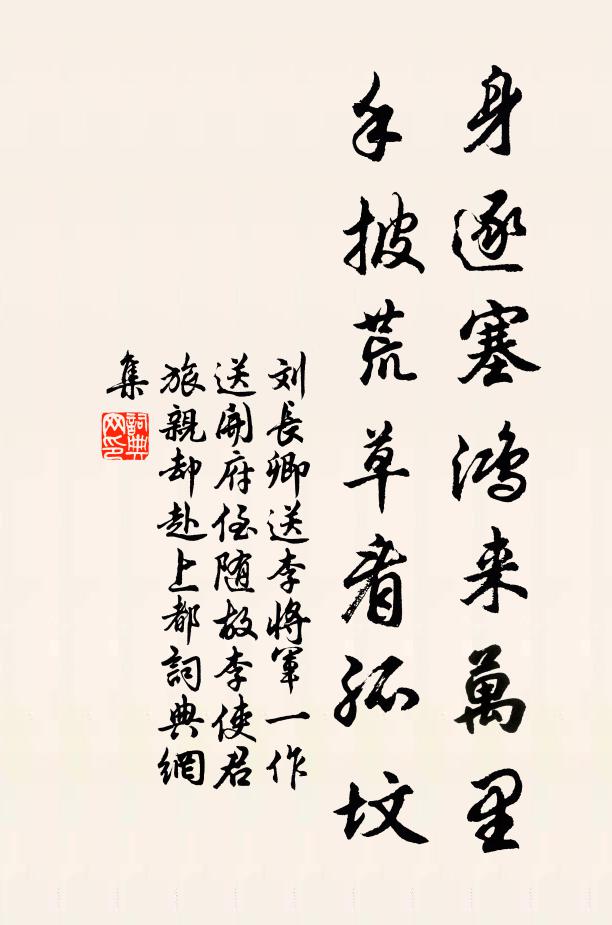 身逐塞鸿来萬里
手披荒草看孤坟
刘長卿送李将軍一作
送開府侄随故李使君
旅親却赴上都詞典網
集
詞典
网印